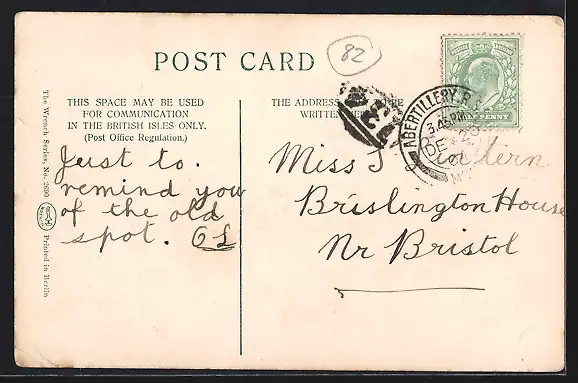 POST CARD
82
THIS SPACE MAY BE USED
FOR COMMUNICATION
IN THE BRITISH ISLES ONLY.
(Post Office Regulation.)
THE ADDRESS
WRITTEN
Just to.
remind you
of the old
spot.
Miss
Brislington House
Nr Bristol
ABERTILLERY. R.S.
3.45PM
DE 20
HALF PENNY
The Wrench Series, No. 2690
Printed in Berlin